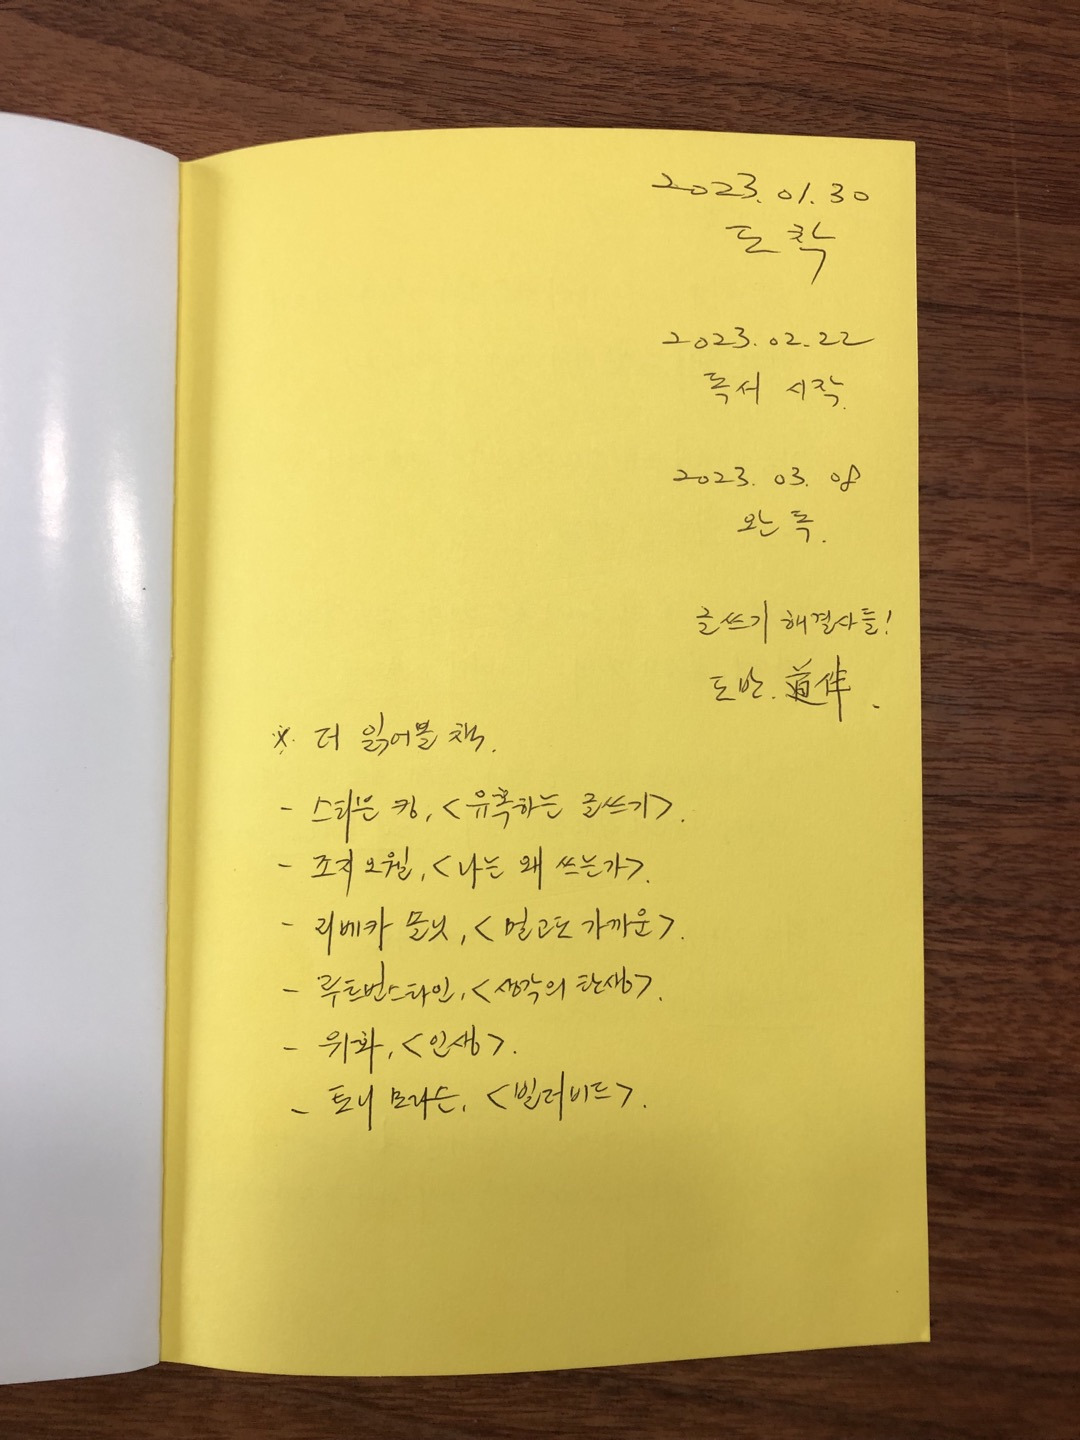 2023.01.30
도착
2023.02.22
독서 시작.
2023.03.08
완독.
글쓰기 해결사들!
도반. 道伴.
※ 더 읽어볼 책.
- 스티븐 킹, <유혹하는 글쓰기>.
- 조지 오웰, <나는 왜 쓰는가>.
- 리베카 솔닛, <멀고도 가까운>.
- 루트번스타인, <생각의 탄생>.
- 위화, <인생>.
- 토니 모리슨, <빌러비드>.